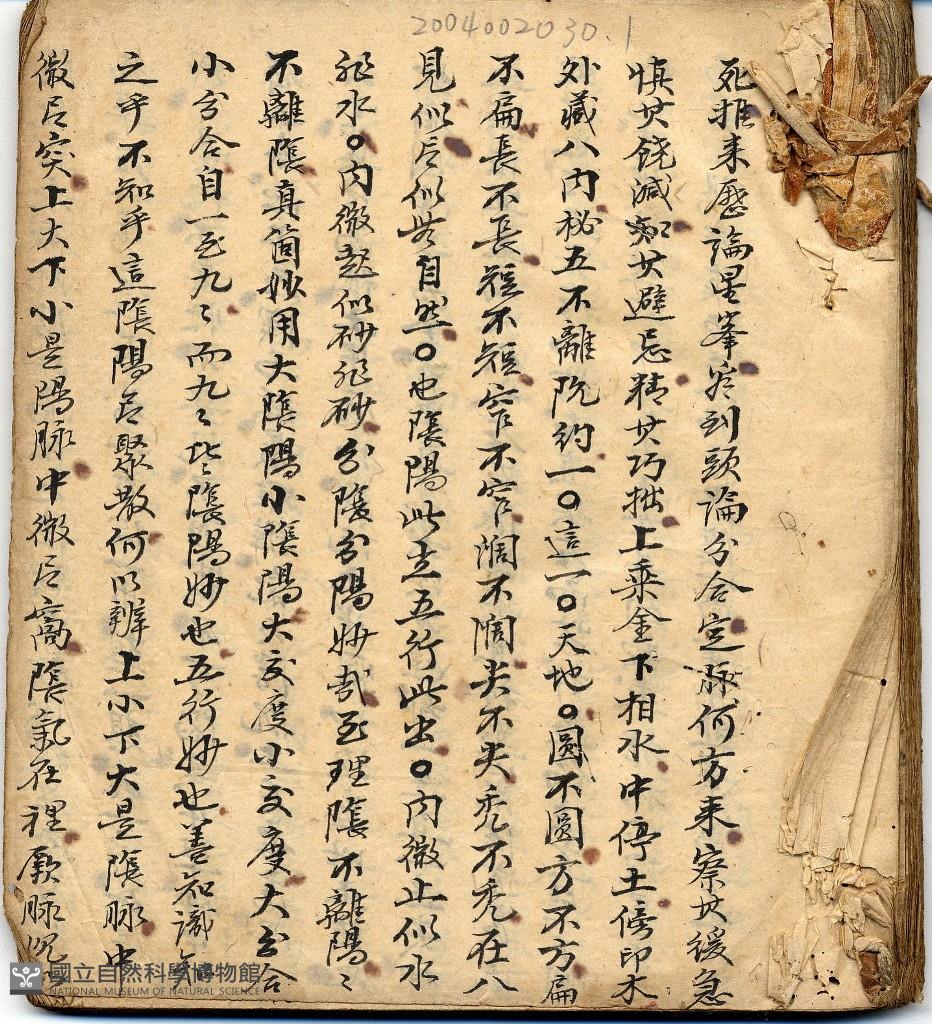 2004002030.1
死推来歷論星峯容到頭論分合定脉何方来察其緩急
慎其饒減知其避忌精其巧拙上乘金下相水中停土傍印木
外藏八内秘五不離阮約一〇這一〇天地〇圓不圓方不方扁
不扁長不長短不短窄不窄濶不濶尖不尖秃不秃在八
見似后似茅自然〇也陰陽此立五行此出〇内微止似水
非水〇内微起似砂非砂分陰分陽妙哉至理陰不離陽〻
不離陰真箇妙用大陰陽小陰陽大交度小交度大分合
小分合自一至九〻而九〻皆陰陽妙也五行妙也善知識知
之乎不知乎這陰陽有聚散何以辨上小下大是陰脉中
微后突上大下小是陽脉中微后窩陰氣在裡厥脉沉
國立自然科學博物館
NATIONAL MUSEUM OF NATURAL SCIENCE